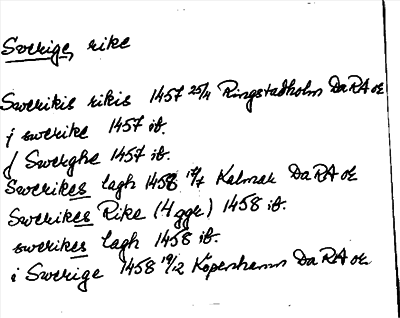 Sverige, rike
Swerikis rikis 1457 25/4 Ringstadholm DaRA or
j swerike 1457 ib.
j Swerghe 1457 ib.
Swerikes lagh 1458 17/7 Kalmar DaRA or
Swerikes Rike (4 ggr) 1458 ib.
swerikes lagh 1458 ib.
i Swerige 1458 19/2 Köpenhamn DaRA or